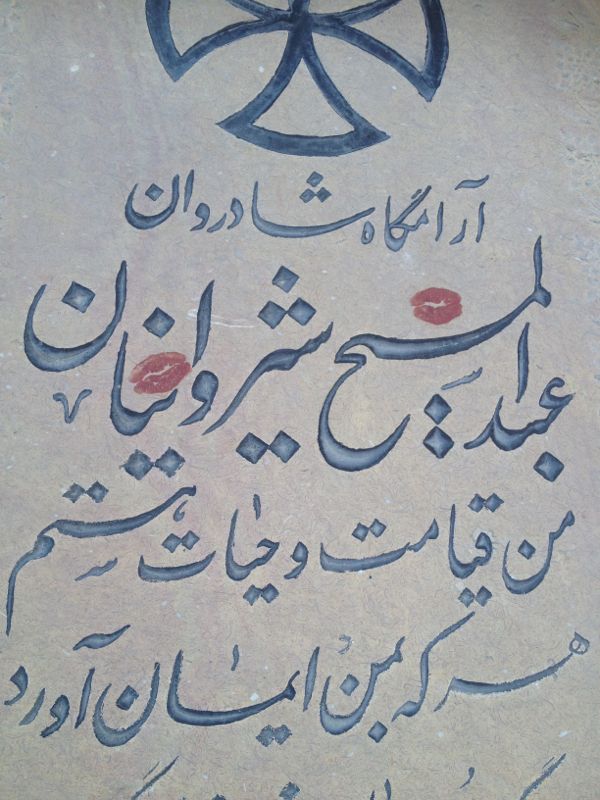 آرامگاه شادروان
عبدالمسیح شیروانیان
من قیامت و حیات هستم
هر که بمن ایمان آورد